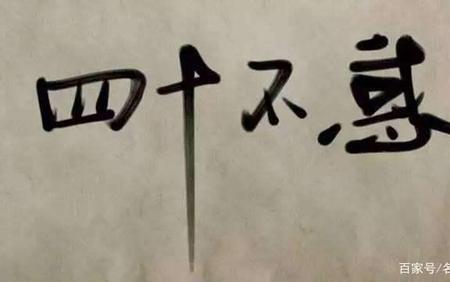 四十不惑
百家号/名